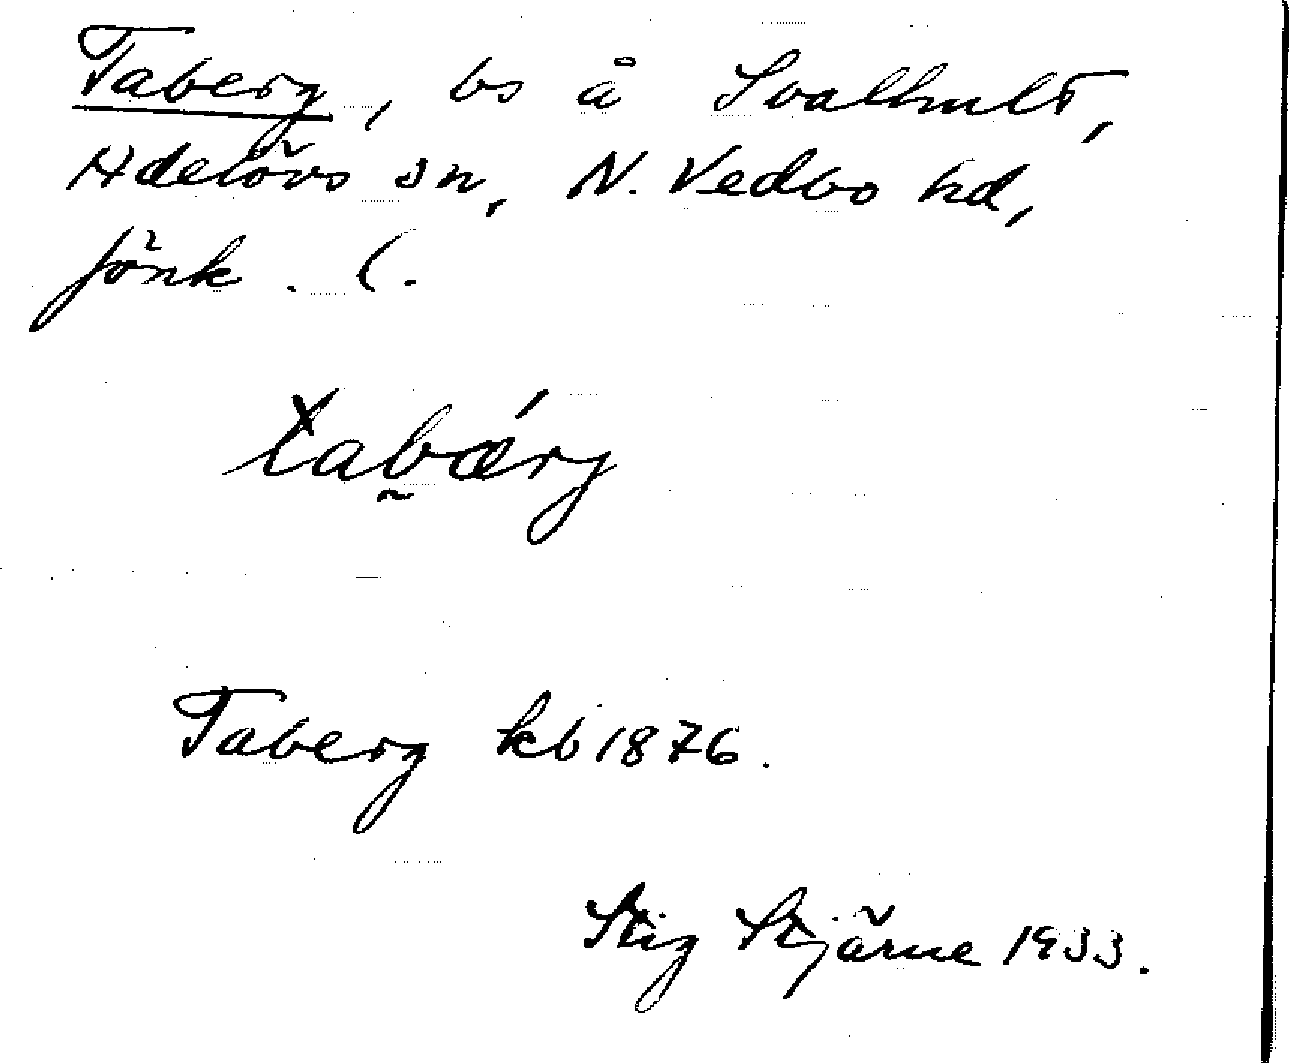 Taberg, bs å Svalhult,
Adelövs sn, N. Vedbo hd,
Jönk. l.
tabærg
Taberg kb 1876.
Stig Stjärne 1933.